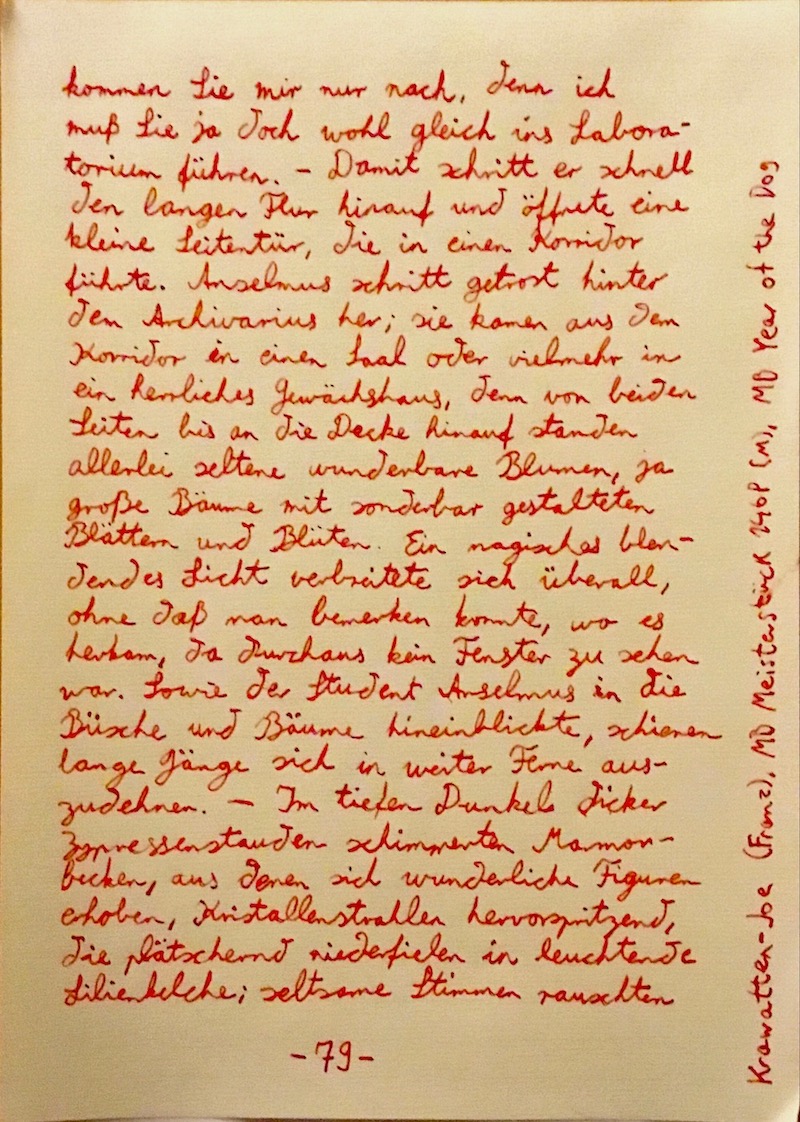 kommen Sie mir nur nach, denn ich
muß Sie ja doch wohl gleich ins Labora-
torium führen. – Damit schritt er schnell
den langen Flur hinauf und öffnete eine
kleine Seitentür, die in einen Korridor
führte. Anselmus schritt getrost hinter
dem Archivarius her; sie kamen aus dem
Korridor in einen Saal oder vielmehr in
ein herrliches Gewächshaus, denn von beiden
Seiten bis an die Decke hinauf standen
allerlei seltene wunderbare Blumen, ja
große Bäume mit sonderbar gestalteten
Blättern und Blüten. Ein magisches blen-
dendes Licht verbreitete sich überall,
ohne daß man bemerken konnte, wo es
herkam, da durchaus kein Fenster zu sehen
war. Sowie der Student Anselmus in die
Büsche und Bäume hineinblickte, schienen
lange Gänge sich in weiter Ferne aus-
zudehnen. – Im tiefen Dunkel dicker
Zypressenstauden schimmerten Marmor-
becken, aus denen sich wunderliche Figuren
erhoben, Kristallenstrahlen hervorspritzend,
die plätschernd niederfielen in leuchtende
Lilienkelche; seltsame Stimmen rauschten
-79-
Krawatten-Joe (Franz), MB Meisterstück 149P (M), MB Year of the Dog